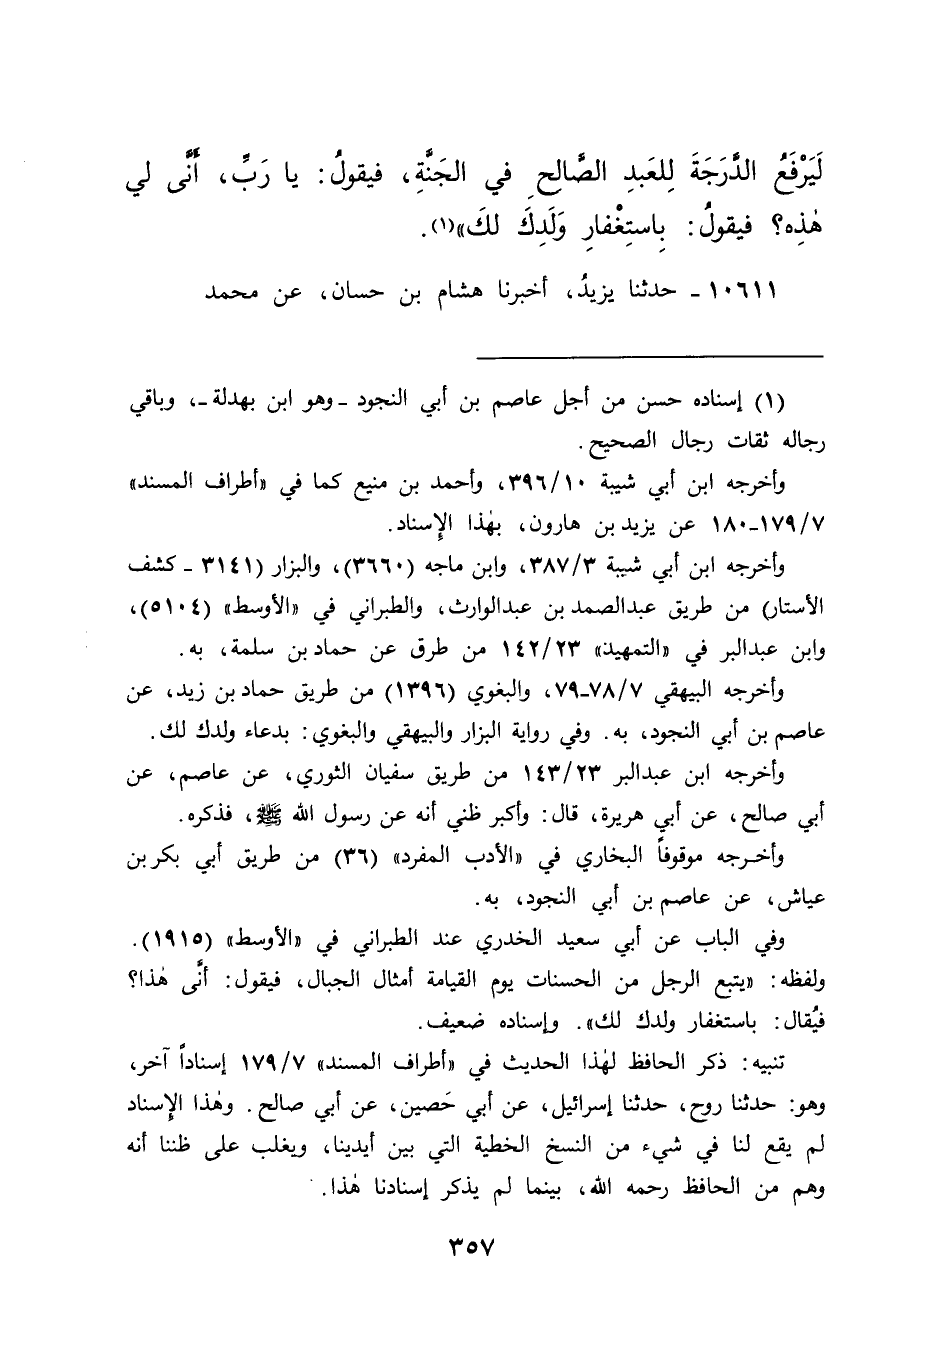 لَيَرْفَعُ الدَّرَجَةَ لِلعَبدِ الصَّالِحِ في الجَنَّةِ، فيقولُ: يا رَبِّ، أَنَّى لي
هٰذِه؟ فيقولُ: بِاستِغْفارِ وَلَدِكَ لكَ»(١).
١٠٦١١ ـ حدثنا يزيدُ، أخبرنا هشام بن حسان، عن محمد
(١) إسناده حسن من أجل عاصم بن أبي النجود ـ وهو ابن بهدلة ـ، وباقي
رجاله ثقات رجال الصحيح.
وأخرجه ابن أبي شيبة ٣٩٦/١٠، وأحمد بن منيع كما في «أطراف المسند»
١٧٩/٧ـ١٨٠ عن يزيد بن هارون، بهٰذا الإِسناد.
وأخرجه ابن أبي شيبة ٣٨٧/٣، وابن ماجه (٣٦٦٠)، والبزار (٣١٤١ ـ كشف
الأستار) من طريق عبدالصمد بن عبدالوارث، والطبراني في «الأوسط» (٥١٠٤)،
وابن عبدالبر في «التمهيد» ١٤٢/٢٣ من طرق عن حماد بن سلمة، به.
وأخرجه البيهقي ٧٨/٧ـ٧٩، والبغوي (١٣٩٦) من طريق حماد بن زيد، عن
عاصم بن أبي النجود، به. وفي رواية البزار والبيهقي والبغوي: بدعاء ولدك لك.
وأخرجه ابن عبدالبر ١٤٣/٢٣ من طريق سفيان الثوري، عن عاصم، عن
أبي صالح، عن أبي هريرة، قال: وأكبر ظني أنه عن رسول الله ﷺ، فذكره.
وأخـرجه موقوفاً البخاري في «الأدب المفرد» (٣٦) من طريق أبي بكر بن
عياش، عن عاصم بن أبي النجود، به.
وفي الباب عن أبي سعيد الخدري عند الطبراني في «الأوسط» (١٩١٥).
ولفظه: «يتبع الرجل من الحسنات يوم القيامة أمثال الجبال، فيقول: أنَّى هٰذا؟
فيُقال: باستغفار ولدك لك». وإسناده ضعيف.
تنبيه: ذكر الحافظ لهٰذا الحديث في «أطراف المسند» ١٧٩/٧ إسناداً آخر،
وهو: حدثنا روح، حدثنا إسرائيل، عن أبي حَصين، عن أبي صالح. وهٰذا الإِسناد
لم يقع لنا في شيء من النسخ الخطية التي بين أيدينا، ويغلب على ظننا أنه
وهم من الحافظ رحمه الله، بينما لم يذكر إسنادنا هٰذا.
٣٥٧